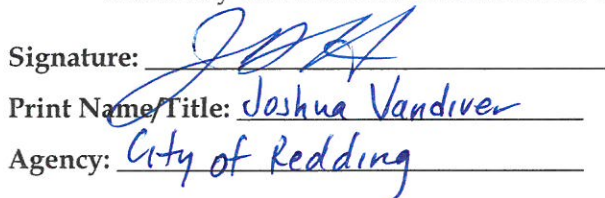 Signature:
Print Name/Title: Joshua Vandiver
Agency: City of Redding